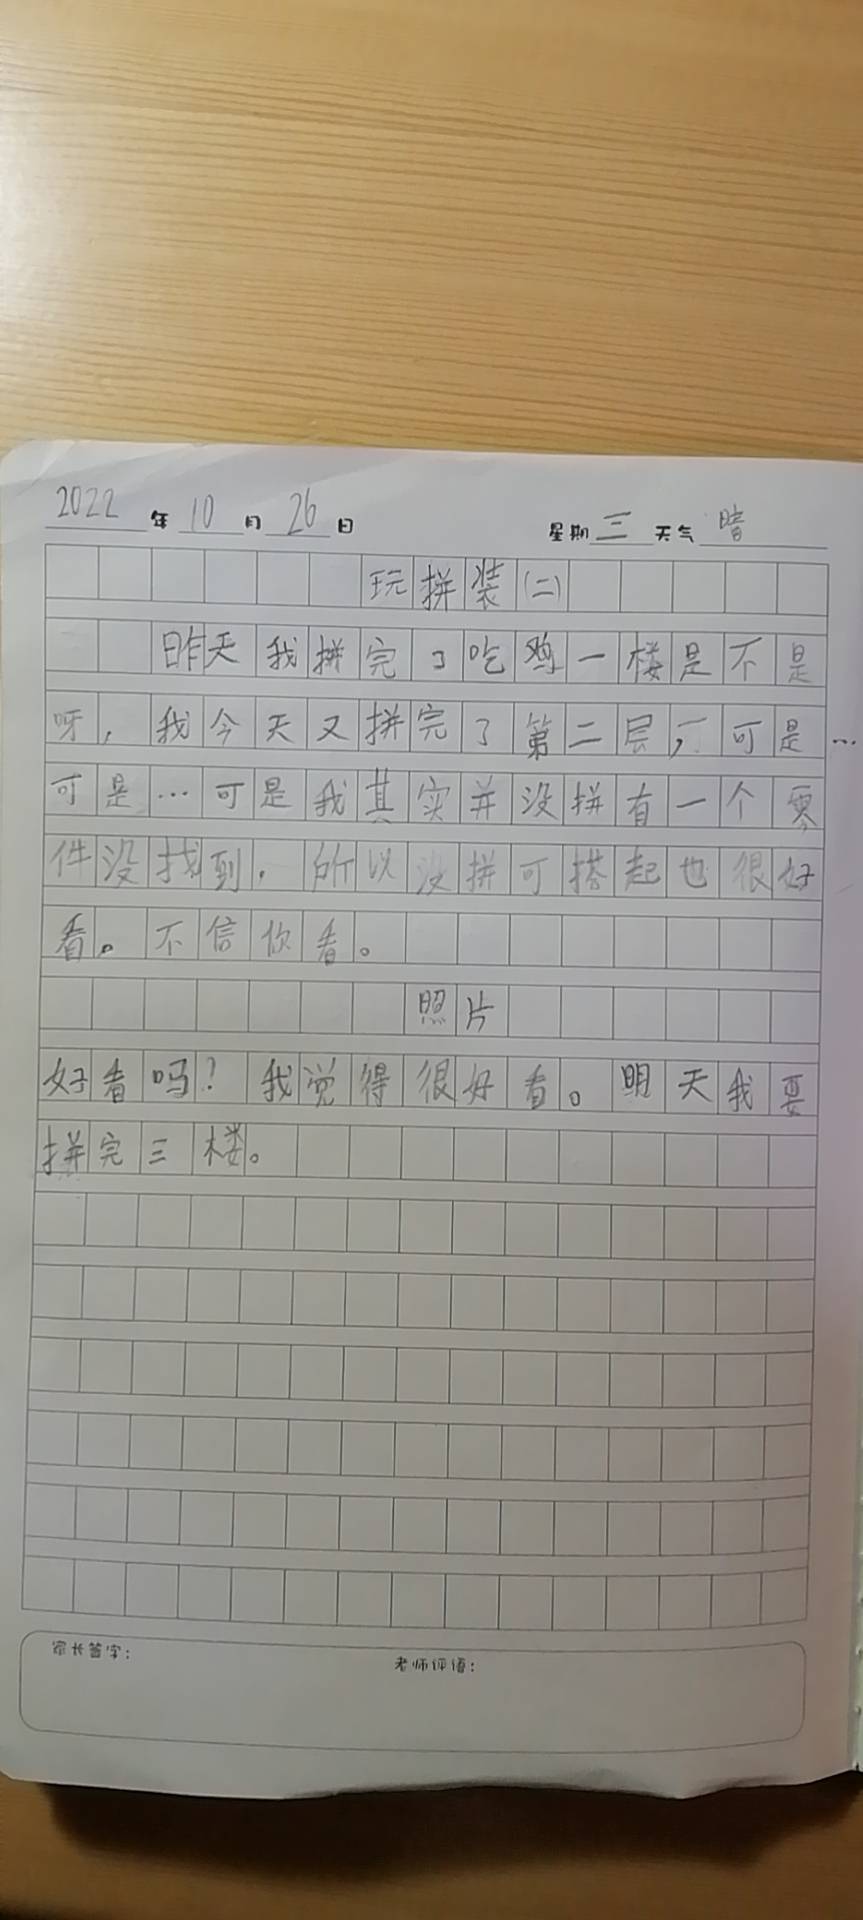 2022年10月26日 星期三天气暗
玩拼装(二)
昨天我拼完了吃鸡一楼是不是
呀，我今天又拼完了第二层，可是…
可是…可是我其实并没拼有一个零
件没找到，所以没拼可搭起也很好
看。不信你看。
照片
好看吗？我觉得很好看。明天我要
拼完三楼。
家长签字：
老师评语：